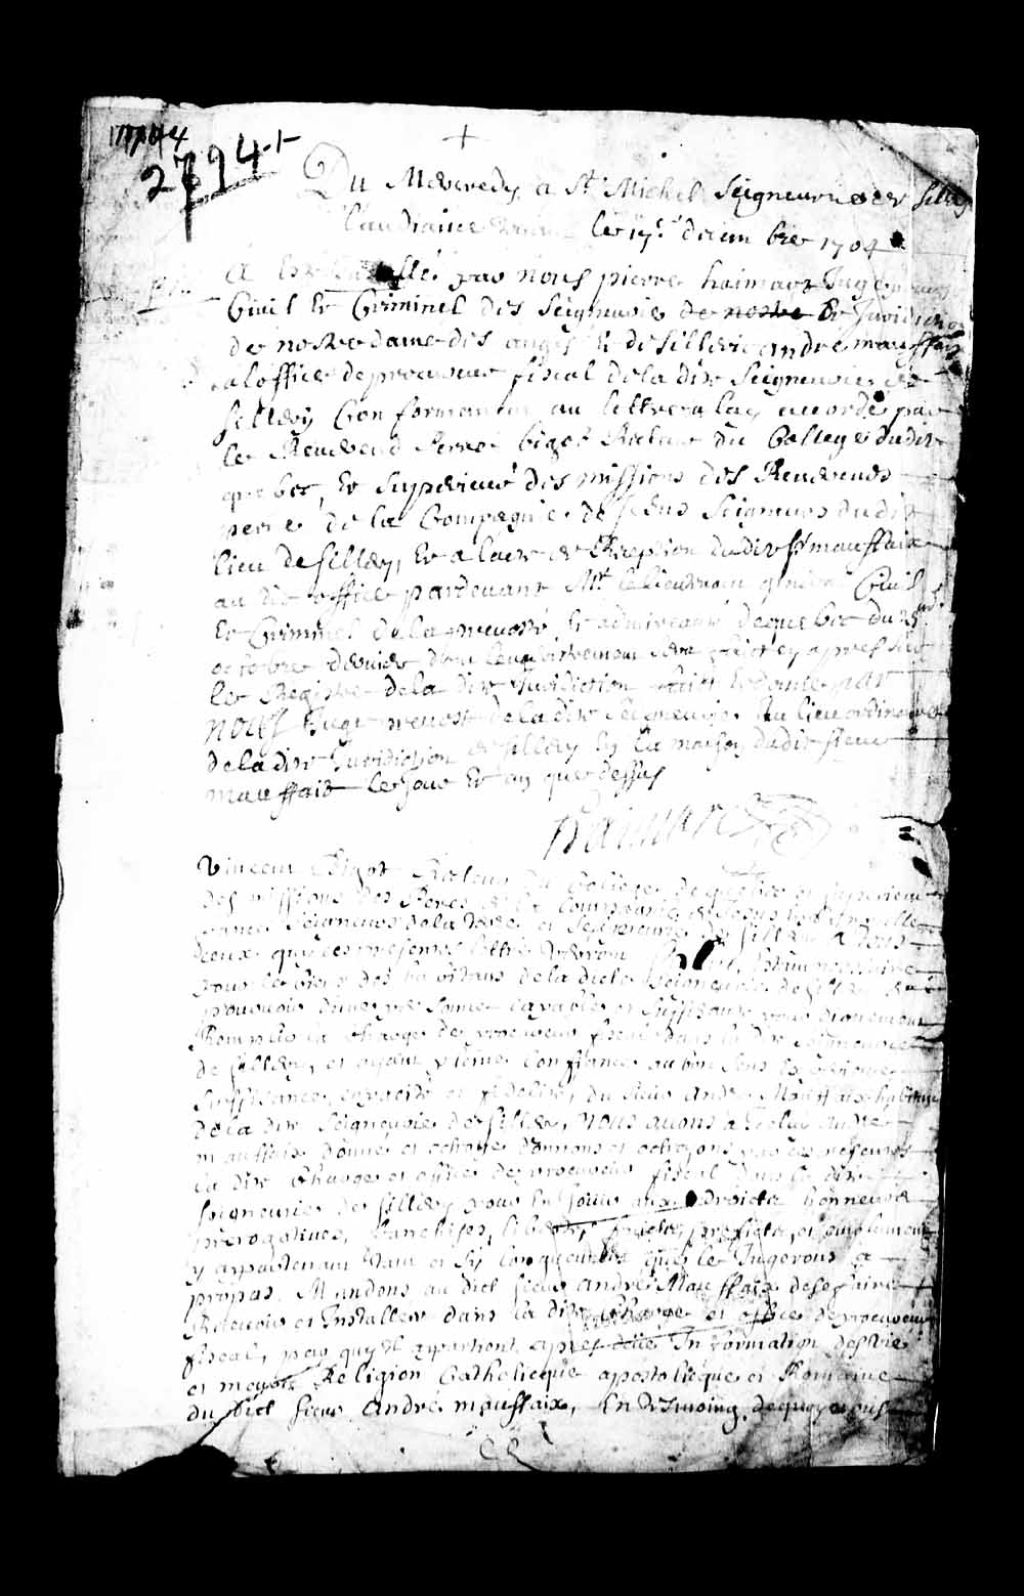 2794
+
Du Mercredy a St Michel Seigneurie de Sillery
L'audiance le 17e decembre 1704
A este Installé par nous pierre haimart Juge
Civil Et Criminel des Seigneurie de nostre Et Juridiction
de nostre dame des anges Et de Sillery andre mauffait
a loffice de procureur fiscal de la dite Seigneurie de
Sillery Conformement au lettre a luy accordé par
le Reverend Perre bigot Recteur du College dudit
quebec, Et Superieur des missions des Reverends
peere de la Compagnie de Jesus Seigneurs dudit
lieu de Sillery, Et a lacte de Reception dudit Sr mauffait
au dit office pardevant Mr le lieutenant general Civil
Et Criminel de la prevosté Et admirauté de quebec du
octobre dernier dont lenregistrement sera faict cy apres sur
le Registre de la dite Juridiction faict Et donné par
nous Juge prevost de la dite Seigneurie Au lieu ordinaire
de la dite Juridiction de Sillery En la maison dudit Sieur
mauffait le Jour Et an que dessus
haimart
Vincent Bigot Recteur du College de quebec et superieur
des missions des Peres de la Compagnie de Jesus
Seigneurs de la Terre et Seigneurie de Sillery A tous
ceux qui ces presentes lettres verront Salut, Estant necessaire
pour le bien des habitans de la dicte Seigneurie de Sillery de
pourvoir d'une personne capable et suffisante pour dignement
Remplir la charge de procureur fiscal dans la dite Seigneurie
de Sillery, et ayant pleine Confiance au bon sens Experience
suffisance, capacité et fidelité, du sieur André Mauffait habitant
de la dite Seigneurie de Sillery, Nous avons a Iceluy André
mauffait donné et octroyé donnons et octroyons par ces presentes
la dite Charge et office de procureur fiscal dans la dite
Seigneurie de Sillery pour En Jouir aux Droicts honneurs
prerogatives, franchises, libertés, fruicts, profficts, et emolument
y appartenant tant et sy longuement que le Jugerons a
propos. Mandons au dict sieur André Mauffait de se faire
Recevoir et Installer dans la dite charge et office de procureur
fiscal, par quy Il apartient, apres deüe Information des vie
et moeurs Religion Catholicque apostolicque et Romaine
du dict sieur André mauffait, En Tesmoing dequoy nous